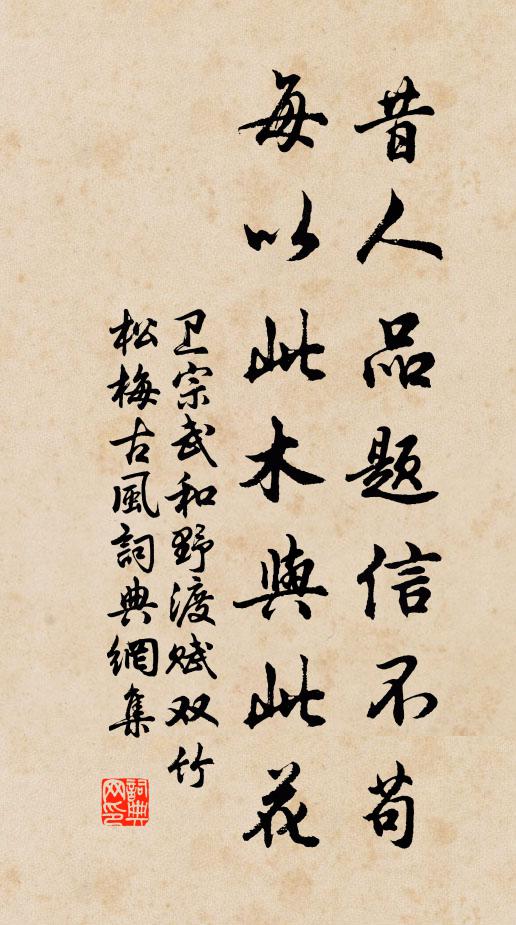 昔人品题信不苟
每以此木與此花
卫宗武和野渡赋双竹
松梅古風詞典網集
詞典网印